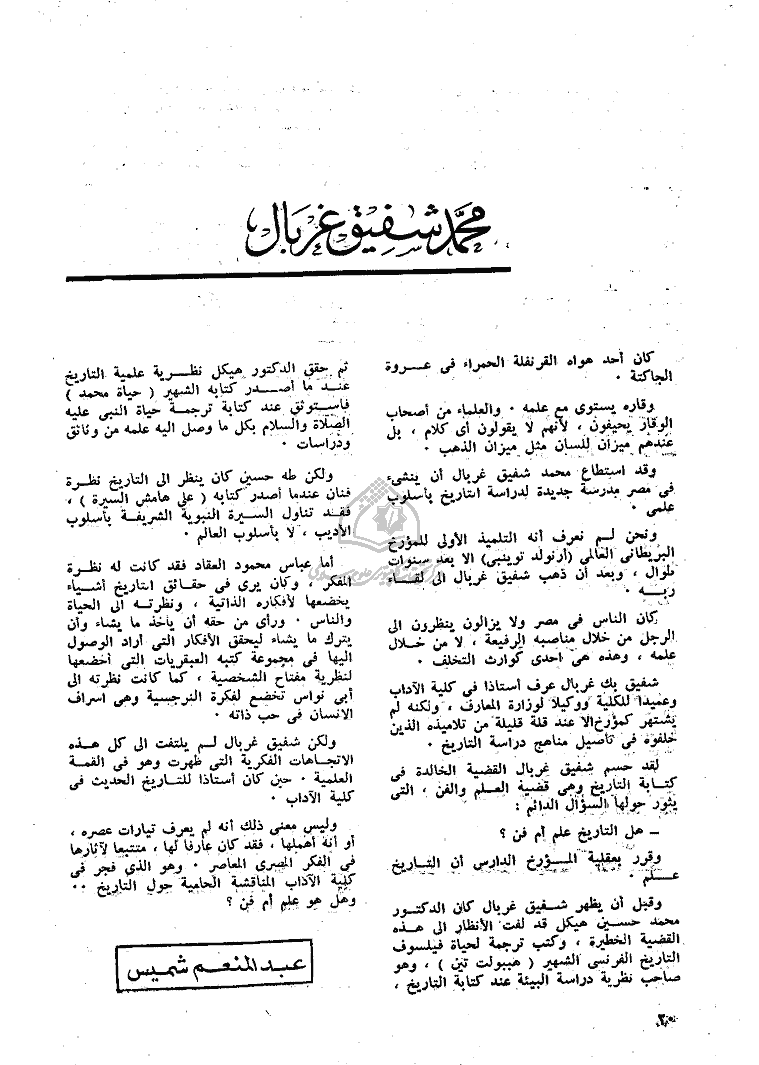 محمد شفيق غربال
كان أحد هواه القرنفلة الحمراء فى عروة
الجاكتة ·
وقاره يستوى مع علمه · والعلماء من أصحاب
الوقار يحيفون ، لأنهم لا يقولون أى كلام ، بل
عندهم ميزان للسان مثل ميزان الذهب ·
وقد استطاع محمد شفيق غربال أن ينشىء
فى مصر مدرسة جديدة لدراسة التاريخ بأسلوب
علمى ·
ونحن لم نعرف أنه التلميذ الأولى للمؤرخ
البريطانى العالمى (أرنولد توينبى) الا بعد سنوات
طوال ، وبعد أن ذهب شفيق غربال الى لقاء
ربه ·
كان الناس فى مصر ولا يزالون ينظرون الى
الرجل من خلال مناصبه الرفيعة ، لا من خلال
علمه ، وهذه هى احدى كوارث التخلف ·
شفيق بك غربال عرف أستاذا فى كلية الآداب
وعميدا للكلية ووكيلا لوزارة المعارف ، ولكنه لم
يشتهر كمؤرخ الا عند قلة قليلة من تلاميذه الذين
خلفوه فى تأصيل مناهج دراسة التاريخ ·
لقد حسم شفيق غربال القضية الخالدة فى
كتابة التاريخ وهى قضية العلم والفن ، التى
يثور حولها السؤال الدائم :
ـ هل التاريخ علم أم فن ؟
وقرر بعقلية المؤرخ الدارس أن التاريخ
علم ·
وقبل أن يظهر شفيق غربال كان الدكتور
محمد حسين هيكل قد لفت الأنظار الى هذه
القضية الخطيرة ، وكتب ترجمة لحياة فيلسوف
التاريخ الفرنسى الشهير ( هيبولت تين ) ، وهو
صاحب نظرية دراسة البيئة عند كتابة التاريخ ،
ثم حقق الدكتور هيكل نظرية علمية التاريخ
عند ما أصدر كتابه الشهير ( حياة محمد )
فاستوثق عند كتابة ترجمة حياة النبى عليه
الصلاة والسلام بكل ما وصل اليه علمه من وثائق
ودراسات ·
ولكن طه حسين كان ينظر الى التاريخ نظرة
فنان عندما أصدر كتابه ( على هامش السيرة ) ،
فقد تناول السيرة النبوية الشريفة بأسلوب
الأديب ، لا بأسلوب العالم ·
أما عباس محمود العقاد فقد كانت له نظرة
المفكر ، وكان يرى فى حقائق التاريخ أشياء
يخضعها لأفكاره الذاتية ، ونظرته الى الحياة
والناس · ورأى من حقه أن يأخذ ما يشاء وأن
يترك ما يشاء ليحقق الأفكار التى أراد الوصول
اليها فى مجموعة كتبه العبقريات التى أخضعها
لنظرية مفتاح الشخصية ، كما كانت نظرته الى
أبى نواس تخضع لفكرة النرجسية وهى اسراف
الانسان فى حب ذاته ·
ولكن شفيق غربال لم يلتفت الى كل هذه
الاتجاهات الفكرية التى ظهرت وهو فى القمة
العلمية · حين كان أستاذا للتاريخ الحديث فى
كلية الآداب ·
وليس معنى ذلك أنه لم يعرف تيارات عصره ،
أو أنه أهملها ، فقد كان عارفا لها ، متتبعا لآثارها
فى الفكر المصرى المعاصر · وهو الذى فجر فى
كلية الآداب المناقشة الحامية حول التاريخ ··
وهل هو علم أم فن ؟
عبد المنعم شميس